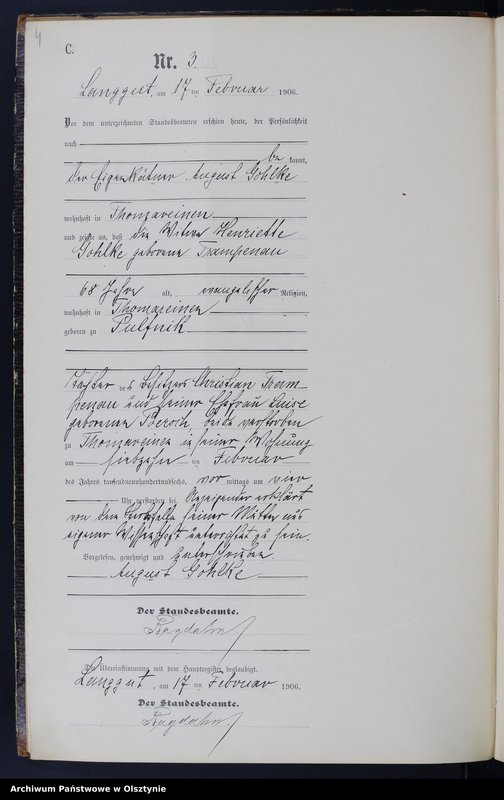 4
C.
Nr. 3.
Langgut, am 17 ten Februar 1906.
Vor dem unterzeichneten Standesbeamten erschien heute, der Persönlichkeit
nach
be kannt,
der Eigenkätner August Gohlke
wohnhaft in Thomareinen
und zeigte an, daß die Witwe Henriette
Gohlke geborene Trampenau
68 Jahre alt, evangelischer Religion,
wohnhaft in Thomareinen
geboren zu Pulfnik
Tochter des Besitzers Christian Tram-
penau und seiner Ehefrau Luise
geborenen beide verstorben
zu Thomareinen in seiner Wohnung
am siebzehn ten Februar
des Jahres tausendneunhundertundsechs, vor mittags um vier
Uhr verstorben sei. Anzeigender erklärt
von dem Sterbefalle seiner Mutter aus
eigener Wissenschaft unterrichtet zu sein.
Vorgelesen, genehmigt und unterschrieben
August Gohlke
Der Standesbeamte.
Die Übereinstimmung mit dem Hauptregister beglaubigt.
Langgut, am 17 ten Februar 1906.
Der Standesbeamte.
Archiwum Państwowe w Olsztynie